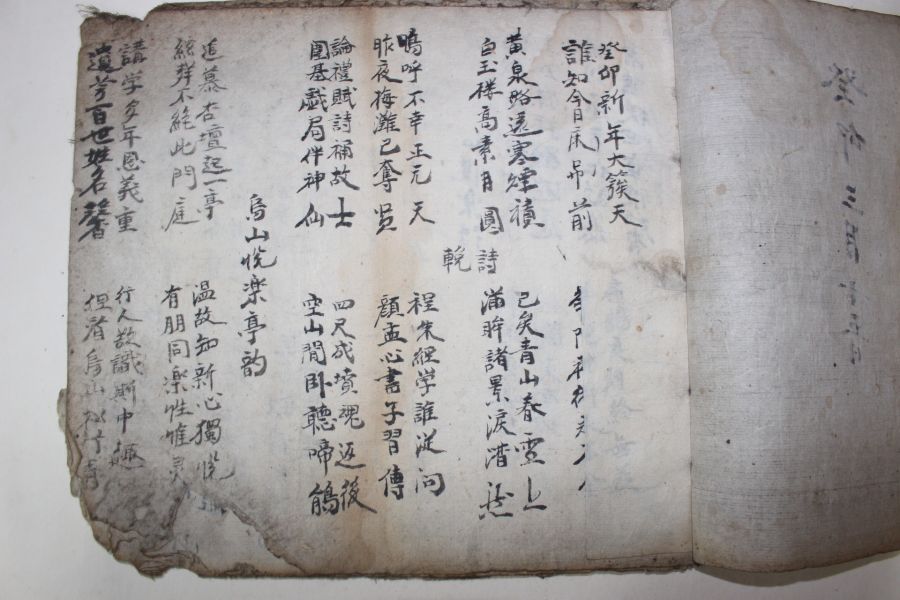 癸卯三月十五日
癸卯新年大簇天
誰知今日吊前
黃泉路遠寒煙積
白玉樓高素月圓
已矣青山春雲上
滿眸諸景淚潸
輓詩
嗚呼不幸正元天
昨夜梅灘已奪賢
程朱經学誰從問
顔孟心書子習傳
論禮賦詩補故士
圍碁戱局伴神仙
四尺成墳魂返後
空山閒卧聽啼鵑
烏山悅楽亭韵
追慕杏壇起一亭
絃聲不絶此門庭
温故知新心獨悅
有朋同楽性惟
講学多年恩義重
遺芳百世姓名馨
行人欲識斯中趣
烏山松竹青